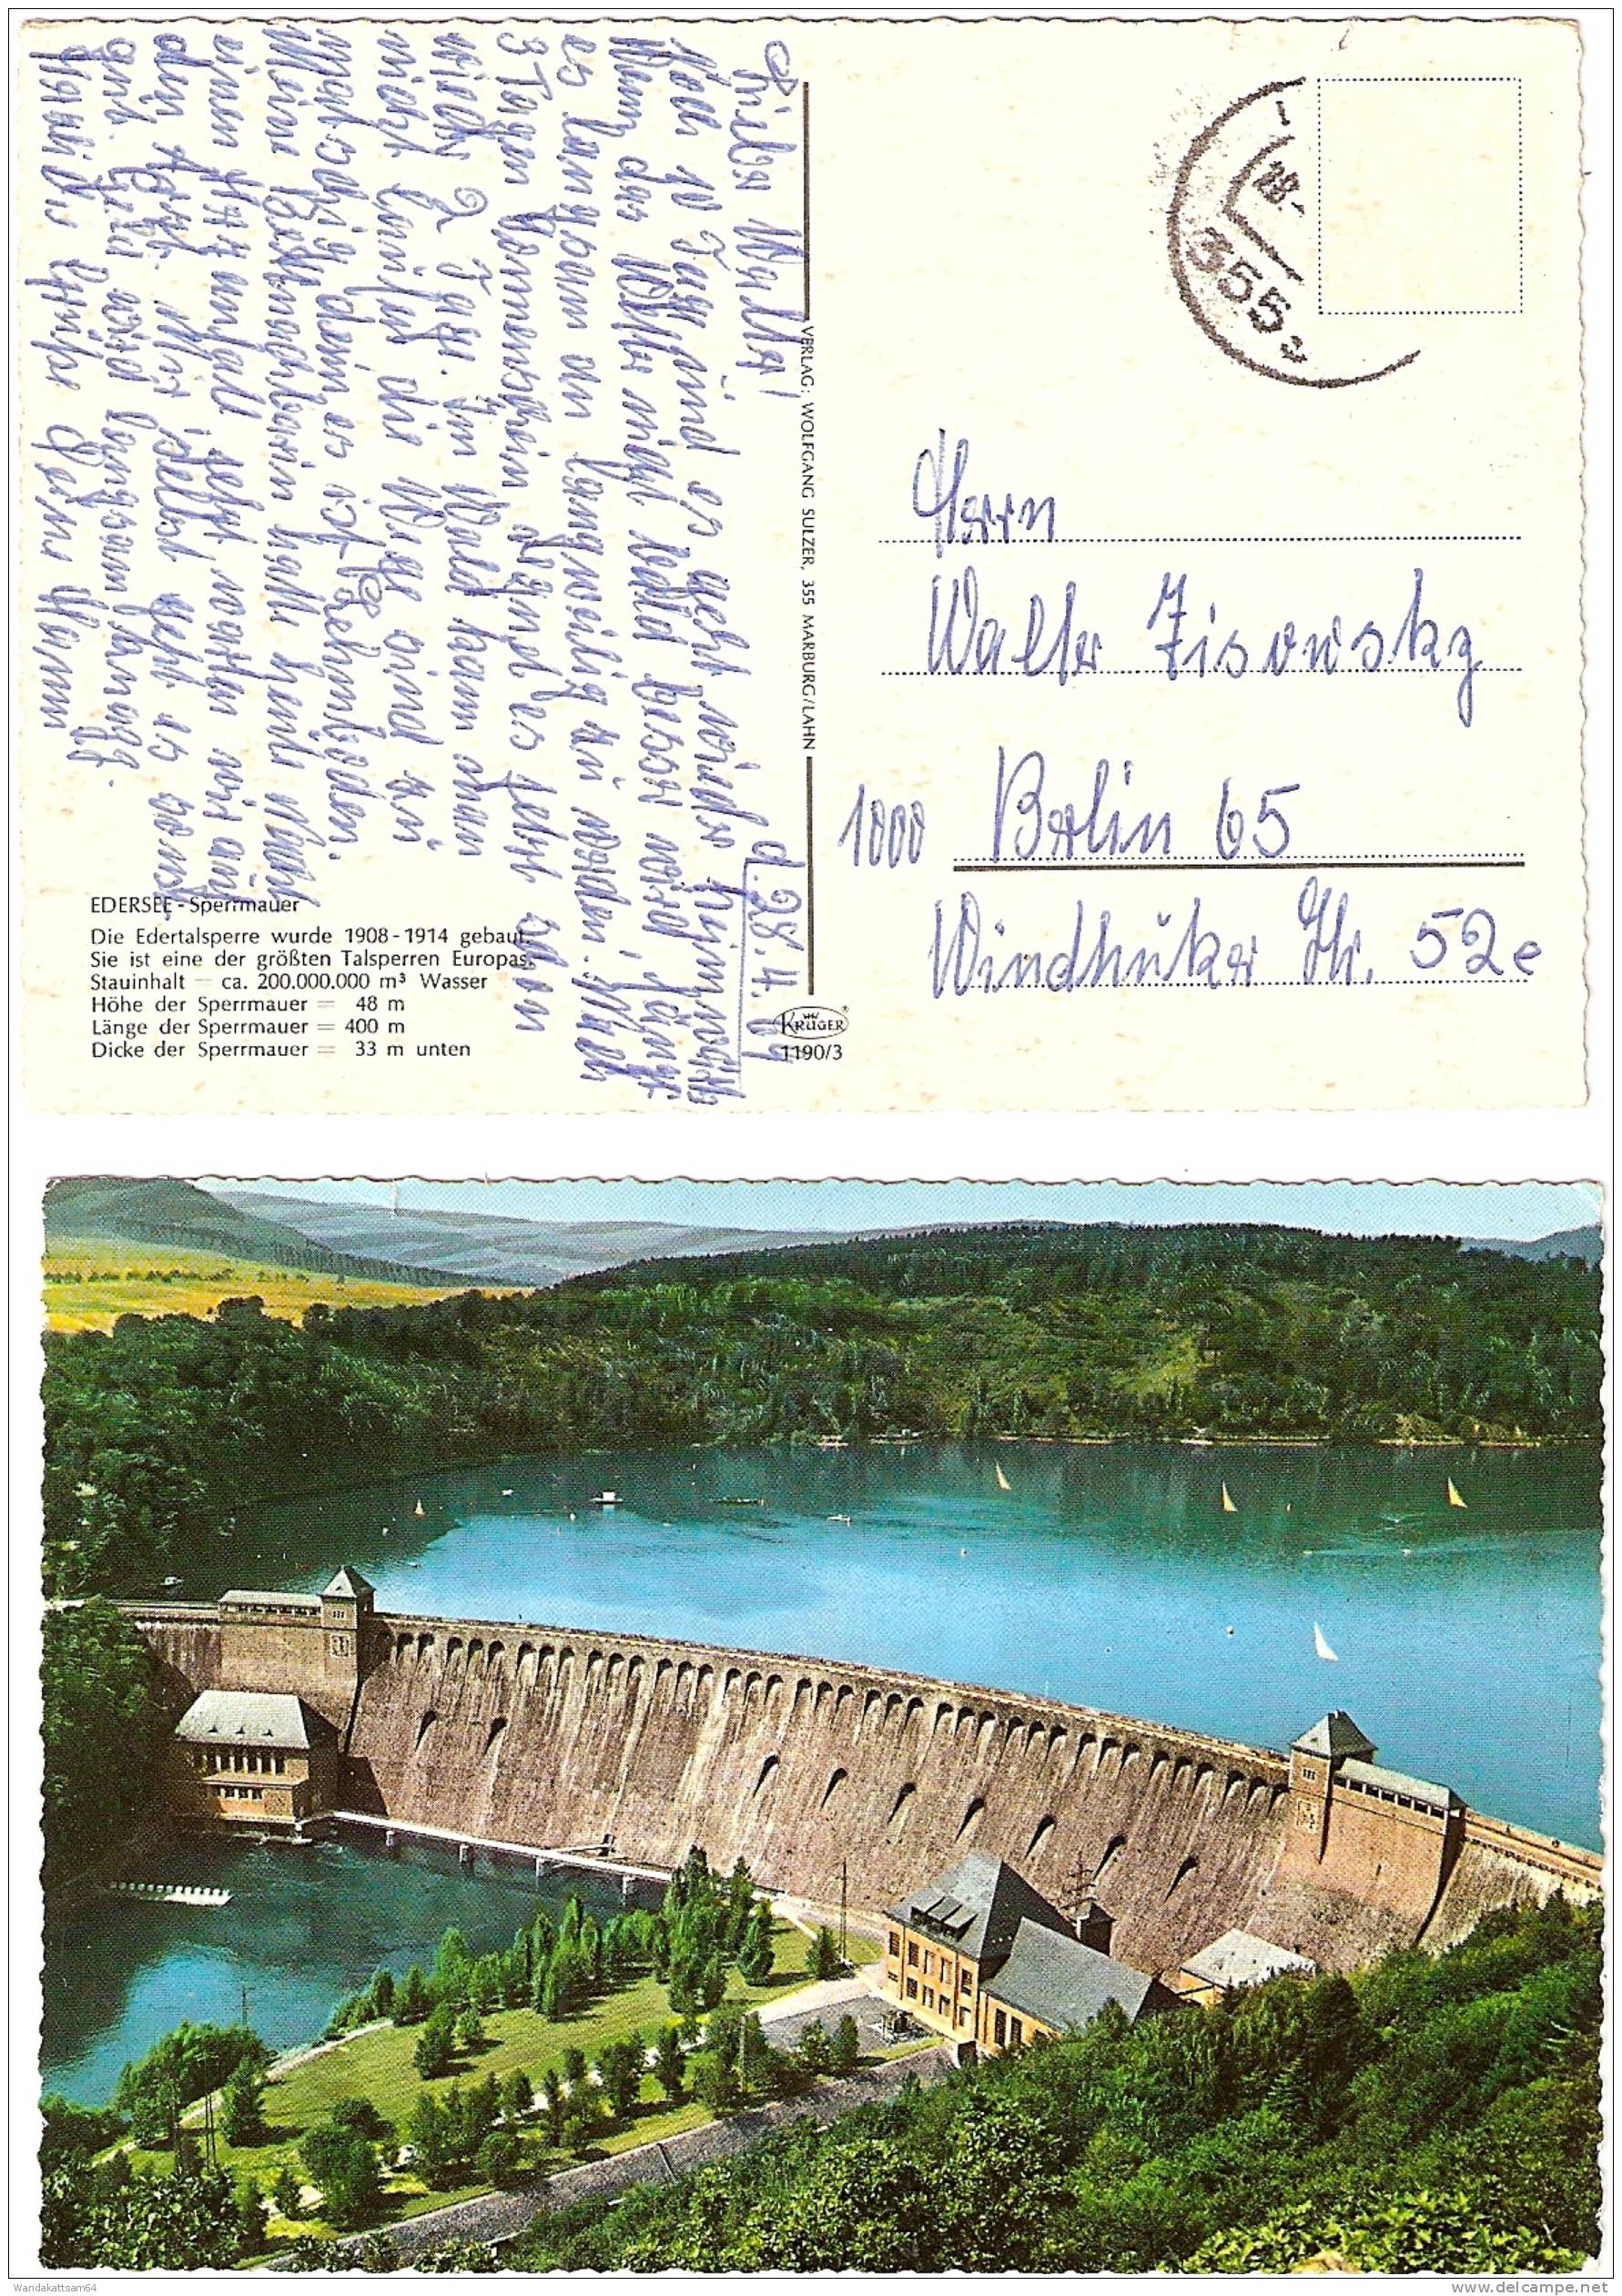 d. 28.4.69
Lieber Walter!
Noch 10 Tage und es geht wieder heimwärts
Wenn das Wetter nicht bald besser wird, fängt
es langsam an langweilig zu werden. Nach
3 Tagen Sonnenschein regnet es jetzt schon
wieder 2 Tage. Im Wald kann man
nicht laufen die Wege sind zu
matschig dem es ist Lehmboden.
Meine Bettnachbarin hatte heute Nacht
einen Herzanfall jetzt warten wir auf
den Arzt. Mir selbst geht es sonst
gut. Geld wird langsam knapp.
Herzliche Grüße Deine
EDERSEE - Sperrmauer
Die Edertalsperre wurde 1908-1914 gebaut.
Sie ist eine der größten Talsperren Europas.
Stauinhalt = ca. 200.000.000 m³ Wasser
Höhe der Sperrmauer = 48 m
Länge der Sperrmauer = 400 m
Dicke der Sperrmauer = 33 m unten
VERLAG: WOLFGANG SULZER, 355 MARBURG/LAHN
KRÜGER
1190/3
355
Herrn
Walter Zisowsky
1000 Berlin 65
Windhuker Str. 52e
Wandakattsam64
www.delcampe.net